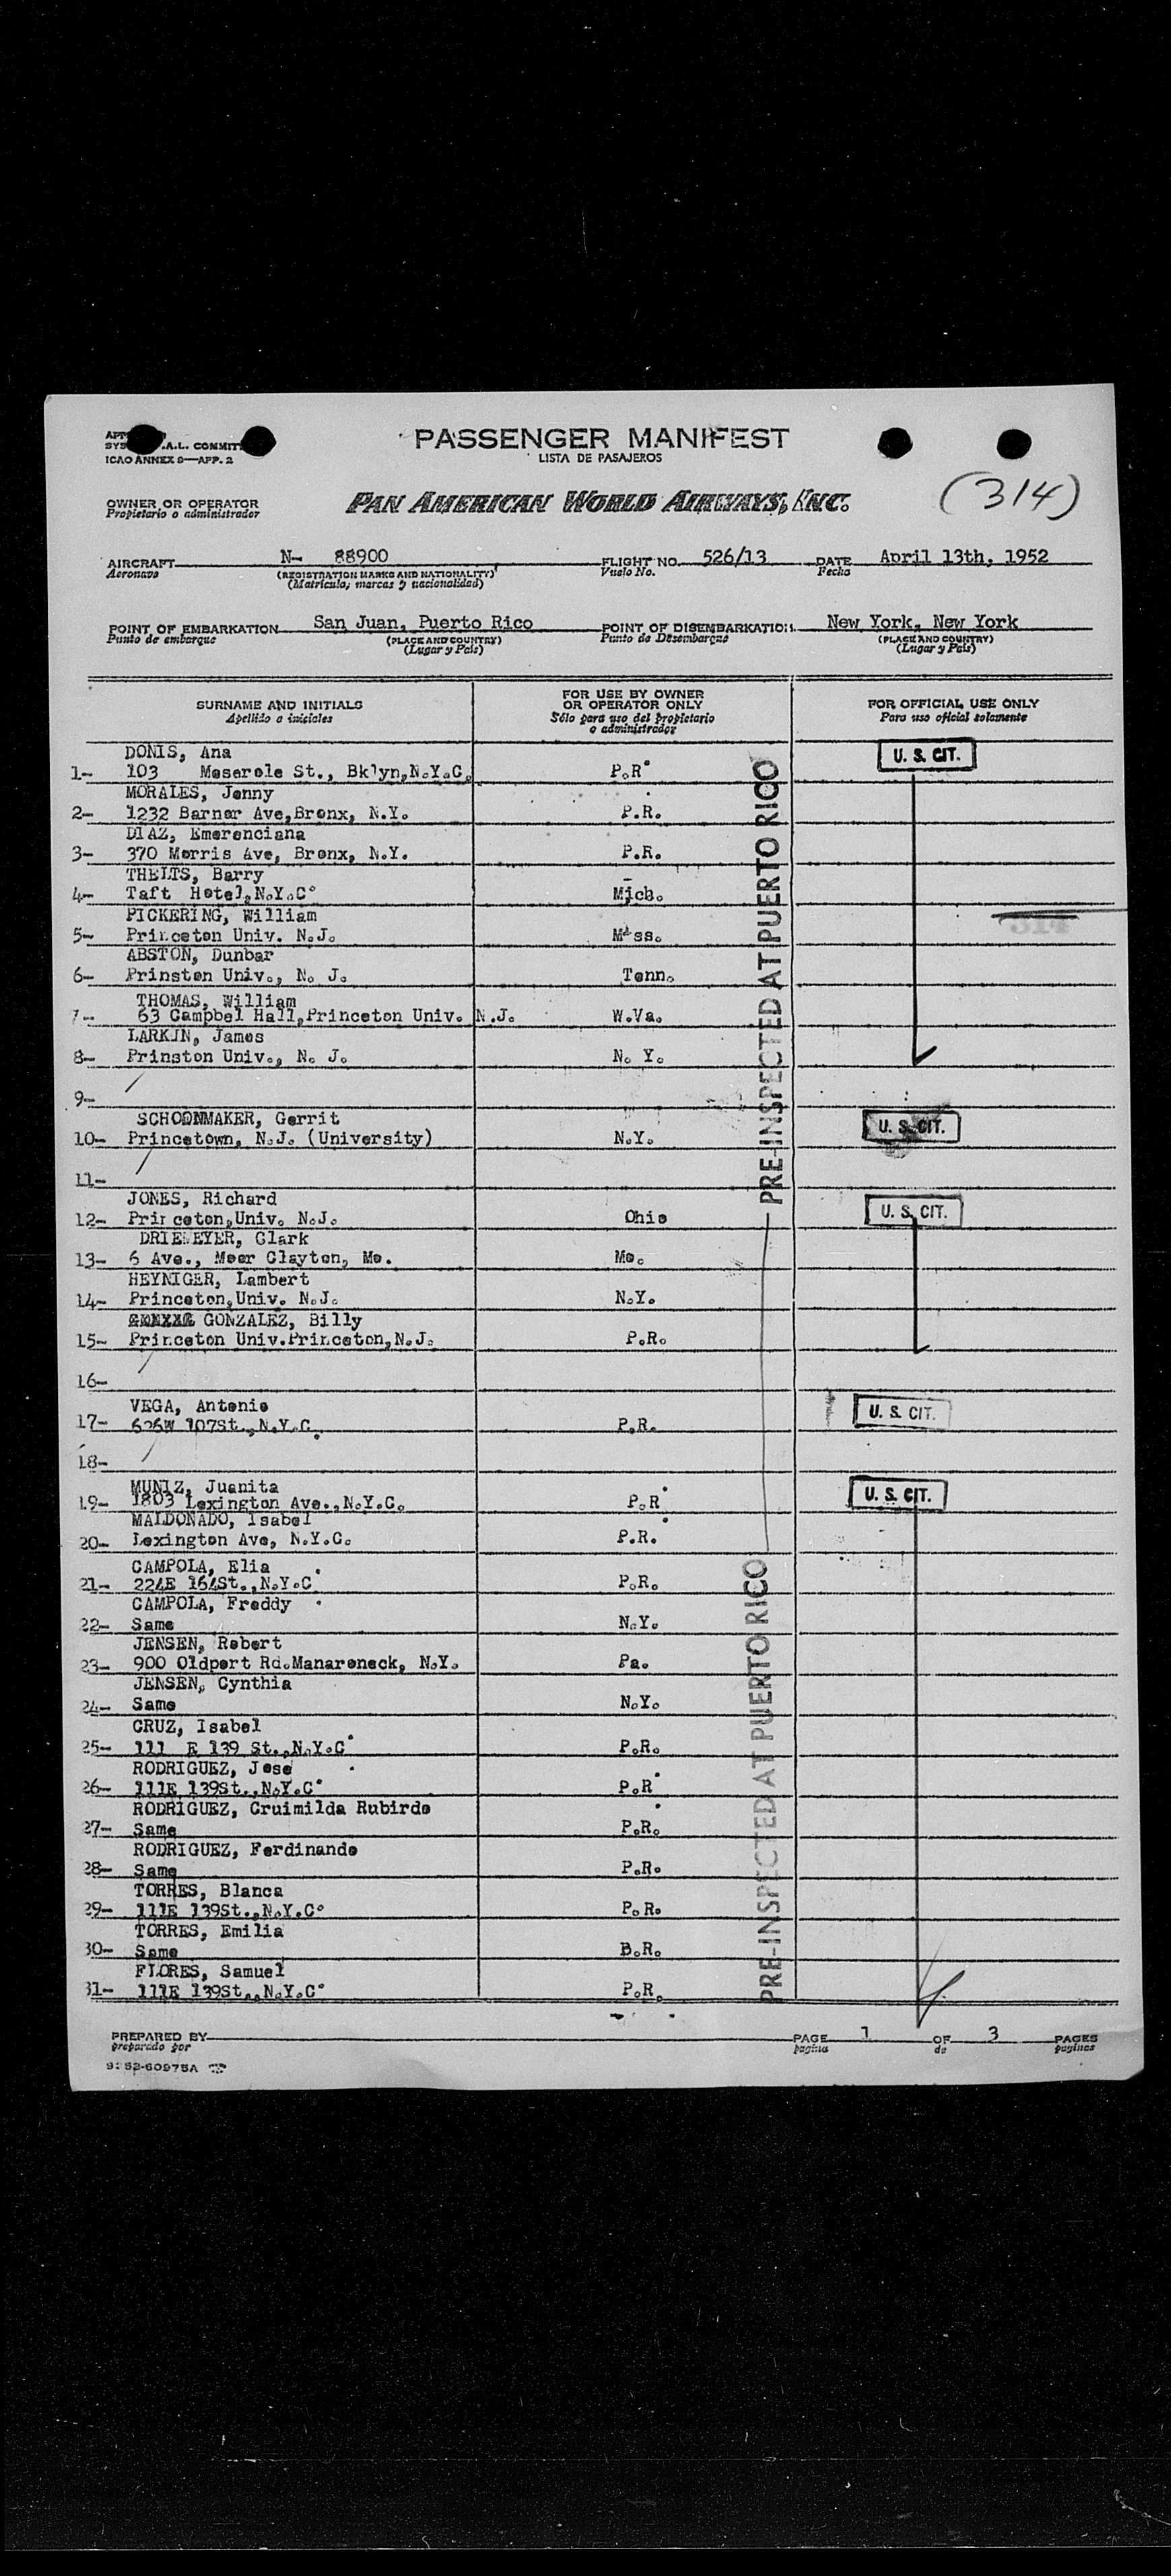 PASSENGER MANIFEST
LISTA DE PASAJEROS
.A.L. COMMIT
ICAO ANNEX 9—APP. 2
OWNER OR OPERATOR
Propietario o administrador
PAN AMERICAN WORLD AIRWAYS, INC.
(314)
AIRCRAFT N- 88900 FLIGHT NO. 526/13 DATE April 13th, 1952
Aeronave (REGISTRATION MARKS AND NATIONALITY) Vuelo No. Fecha
(Matrícula, marcas y nacionalidad)
POINT OF EMBARKATION San Juan, Puerto Rico POINT OF DISEMBARKATION New York, New York
Punto de embarque (PLACE AND COUNTRY) Punto de Desembarque (PLACE AND COUNTRY)
(Lugar y País) (Lugar y País)
SURNAME AND INITIALS
Apellido o iniciales
FOR USE BY OWNER
OR OPERATOR ONLY
Sólo para uso del propietario
o administrador
FOR OFFICIAL USE ONLY
Para uso oficial solamente
DONIS, Ana U. S. CIT.
1- 103 Meserole St., Bklyn,N.Y.C. P.R.
MORALES, Jenny
2- 1232 Barner Ave,Bronx, N.Y. P.R.
DIAZ, Emerenciana
3- 370 Morris Ave, Bronx, N.Y. P.R.
THELTS, Barry
4- Taft Hotel,N.Y.C. Mich.
PICKERING, William
5- Princeton Univ. N.J. Mass.
314
ABSTON, Dunbar
6- Prinston Univ., N. J. Tenn.
THOMAS, William
7- 63 Campbel Hall,Princeton Univ. N.J. W.Va.
LARKIN, James
8- Prinston Univ., N. J. N. Y.
9-
SCHOONMAKER, Gerrit U. S. CIT.
10- Princetown, N.J. (University) N.Y.
11-
JONES, Richard
12- Princeton,Univ. N.J. Ohio U. S. CIT.
DRIEMEYER, Clark
13- 6 Ave., Moor Clayton, Mo. Mo.
HEYNIGER, Lambert
14- Princeton,Univ. N.J. N.Y.
GONZALEZ, Billy
15- Princeton Univ.Princeton,N.J. P.R.
16-
VEGA, Antonio U. S. CIT.
17- 626W 107St.,N.Y.C. P.R.
18-
MUNIZ, Juanita U. S. CIT.
19- 1803 Lexington Ave.,N.Y.C. P.R.
MALDONADO, Isabel
20- Lexington Ave, N.Y.C. P.R.
CAMPOLA, Elia
21- 224E 164St.,N.Y.C. P.R.
CAMPOLA, Freddy
22- Same N.Y.
JENSEN, Robert
23- 900 Oldport Rd.Manaroneck, N.Y. Pa.
JENSEN, Cynthia
24- Same N.Y.
CRUZ, Isabel
25- 111 E 139 St.,N.Y.C. P.R.
RODRIGUEZ, Jose
26- 111E 139St.,N.Y.C. P.R.
RODRIGUEZ, Cruimilda Rubirdo
27- Same P.R.
RODRIGUEZ, Ferdinando
28- Same P.R.
TORRES, Blanca
29- 111E 139St.,N.Y.C. P.R.
TORRES, Emilia
30- Same B.R.
FLORES, Samuel
31- 111E 139St.,N.Y.C. P.R.
PRE-INSPECTED AT PUERTO RICO
PRE-INSPECTED AT PUERTO RICO
PREPARED BY PAGE 1 OF 3 PAGES
preparado por página de páginas